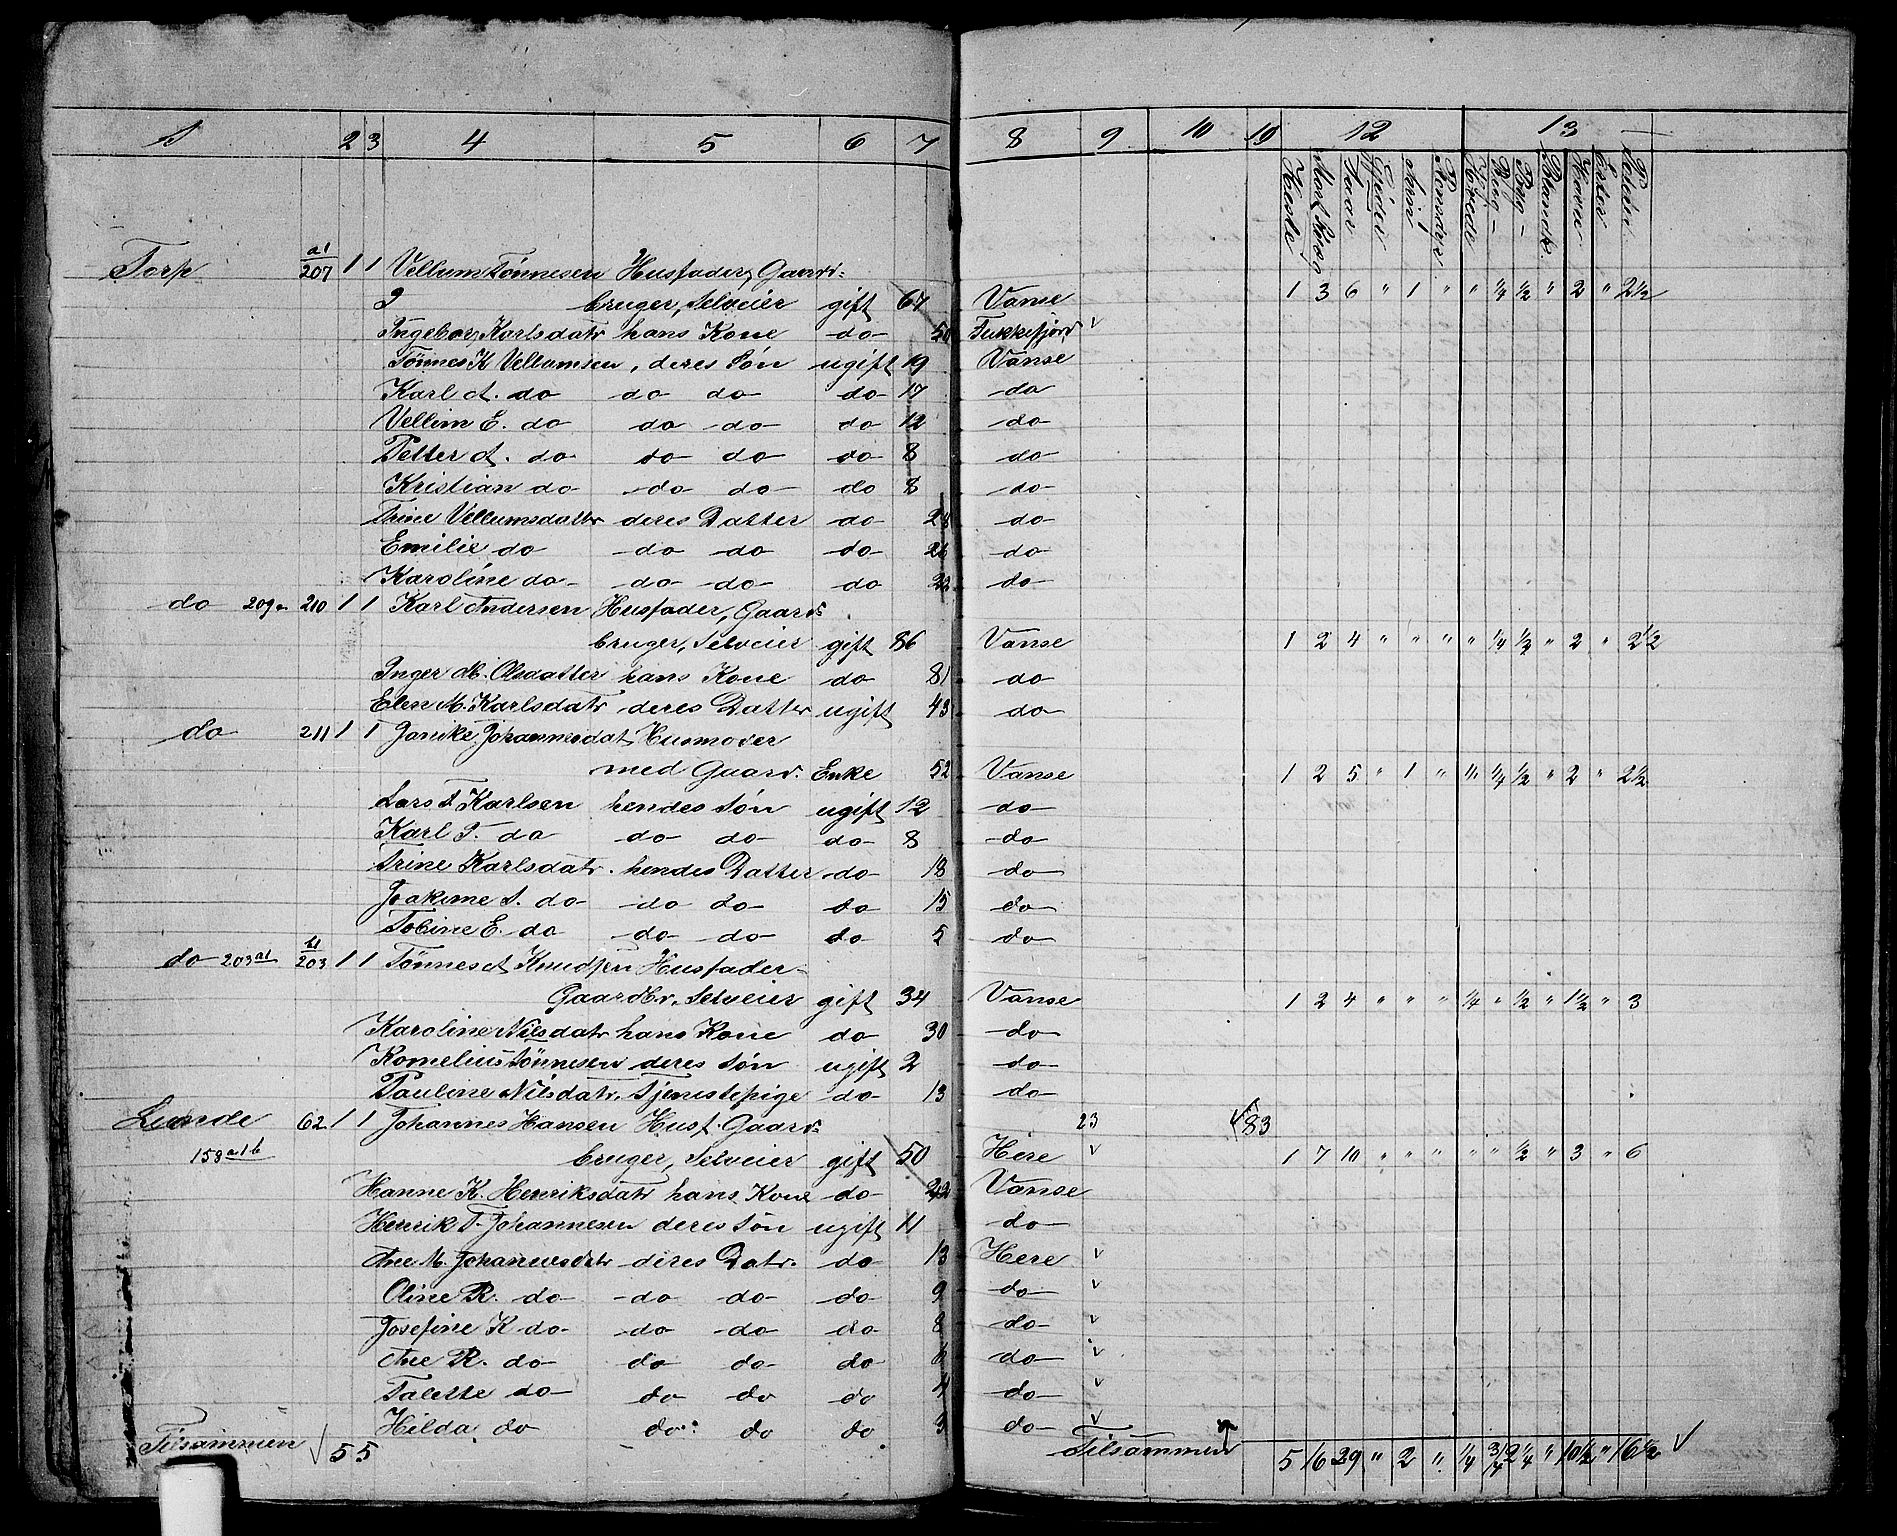 1 2 3 4 5 6 7 8 9 10 10 12 13
Heste Stort Kvæg Faar Gjeder Sviin Rensdyr Hvede Rug Byg Blandk. Havre Erter Poteter
Torp a1/207 1 1 Vellum Tønnesen Husfader, Gaard-
bruger, Selveier gift 67 Vanse 1 3 6 " 1 " " 1/4 1/2 " 2 " 2 1/2
Ingeborg Karlsdatr hans Kone do 50 Fukkefjord v
Tønnes K Vellumsen, deres Søn ugift 19 Vanse
Karl A. do do do do 17 do
Vellim E. do do do do 12 do
Petter A. do do do do 8 do
Kristian do do do do 8 do
Trine Vellumsdatter deres Datter do 28 do
Emilie do do do do 26 do
Karoline do do do do 22 do
do 209 a 210 1 1 Karl Andersen Husfader, Gaard-
bruger, Selveier gift 86 Vanse 1 2 4 " " " " 1/4 1/2 " 2 " 2 1/2
Inger M. Olsdatter hans Kone do 81 do
Elen M. Karlsdatr deres Datter ugift 43 do
do 211 1 1 Janike Johannesdat. Husmoder
med Gaard. Enke 52 Vanse 1 2 5 " 1 " " 1/4 1/2 " 2 " 2 1/2
Lars T Karlsen hendes Søn ugift 12 do
Karl T. do do do do 8 do
Trine Karlsdatr. hendes Datter do 18 do
Joakime S. do do do do 15 do
Tobine E. do do do do 5 do
do 203 a1 b1/203 1 1 Tønnes A Knudsen Husfader
Gaardbr, Selveier gift 34 Vanse 1 2 4 " " " 1/4 " 1/2 " 1 1/2 " 3
Karoline Nilsdatr hans Kone do 30 do
Kornelius Tønnesen deres Søn ugift 2 do
Pauline Nilsdatr. Tjenestepige do 13 do
Lunde 62 1 1 Johannes Hansen Husf. Gaard- 23 83
158 a 1 b bruger, Selveier gift 50 Here v 1 7 10 " " " " " 1/2 " 3 " 6
Hanne K. Henriksdatr hans Kone do 42 Vanse
Henrik T. Johannesen deres Søn ugift 11 do
Ane M. Johannesdatr deres Datr. do 13 Here v
Oline R. do do do do 9 do v
Josefine K do do do do 8 do v
Ane R. do do do do 6 do v
Talette do do do do 4 do v
Hilda do do do do 3 do v
Tilsammen √ 55 Tilsammen 5 16 29 " 2 " 1/4 3/4 2 1/4 " 10 1/2 " 16 1/2 √